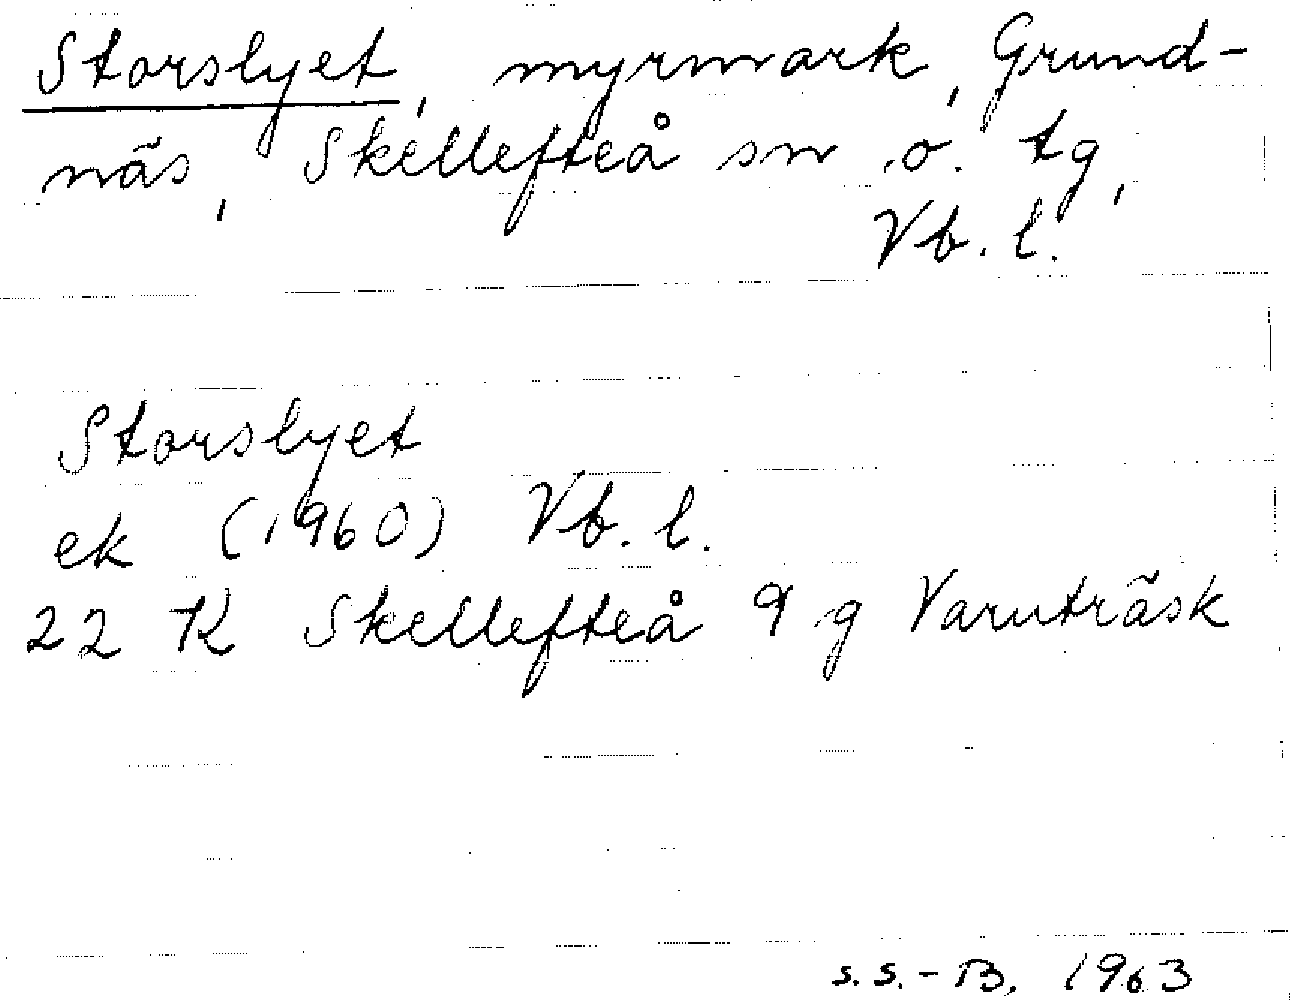 Storslyet, myrmark, Grund-
näs, Skellefteå sn o. tg,
Vb. l.
Storslyet
ek (1960) Vb. l.
22 K Skellefteå 9 g Varuträsk
S.S.-B. 1963